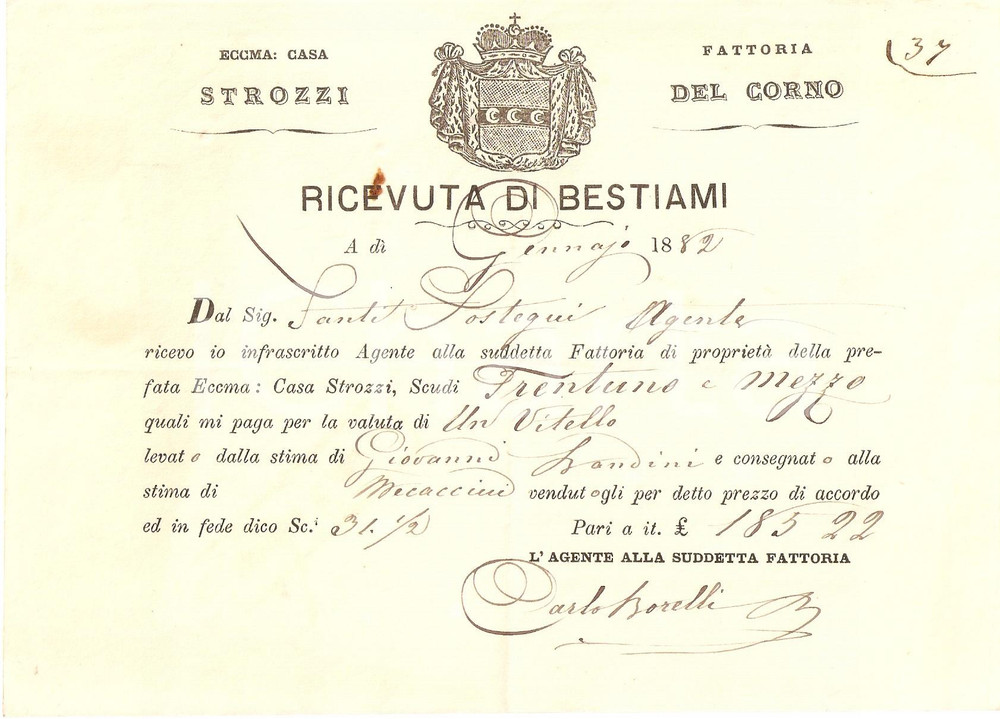 ECCMA: CASA
STROZZI
FATTORIA
DEL CORNO
37
RICEVUTA DI BESTIAMI
A dì Gennajo 1882
Dal Sig. Santi Postegui Agente
ricevo io infrascritto Agente alla suddetta Fattoria di proprietà della pre-
fata Eccma: Casa Strozzi, Scudi Trentuno e mezzo
quali mi paga per la valuta di Un Vitello
levato dalla stima di Giovanni Landini e consegnato alla
stima di Mecaccini vendutogli per detto prezzo di accordo
ed in fede dico Sc.i 31.1/2 Pari a it. £ 185 22
L'AGENTE ALLA SUDDETTA FATTORIA
Carlo Borelli